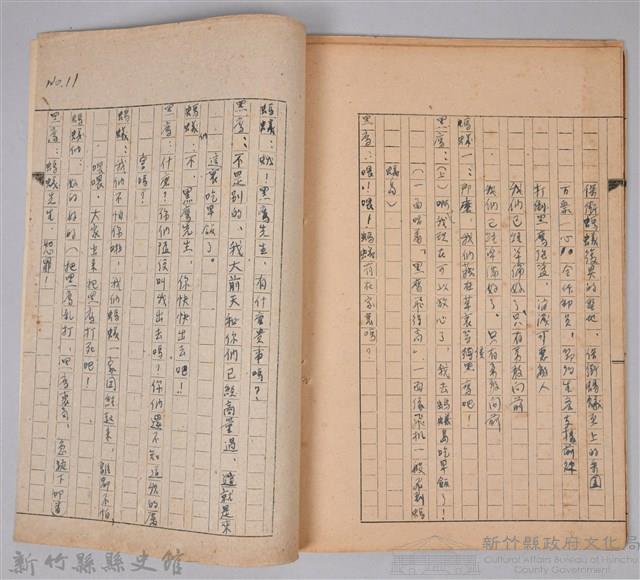 保衛螞蟻後與的聖地,保衛螞蟻至上的家園
萬眾一心 全体動員!節約生產支援前線
打倒黑鷹強盜,消滅可惡敵人
我們已經準備好了只有勇敢向前
我們已經準備好了。只有勇敢向前
螞蟻一:那麼,我們藏在草裏等待黑鷹吧!
黑鷹:(上)啊我現在可以放心了,我去螞蟻島吃早飯了!
(一面唱着「黑鷹飛得高」,一面像飛機一般飛到螞
蟻島)
黑鷹:喂!喂!螞蟻前在家裏嗎?
No.11
螞蟻:哦!黑鷹先生,有什麼貴事嗎?
黑鷹:不是別的,我大前天和你們已經商量過,這就是來
這裏吃早飯了。
螞蟻們:不,黑鷹先生,你快快出去吧!
黑鷹:什麼?你們這樣叫我出去嗎?你們還不知道我的厲
害嗎?
螞蟻:我們不怕你啦,我們螞蟻一家團結起來,誰都不怕
喂喂,大家出來把黑鷹打死吧!
螞蟻們:好的好的(把黑鷹亂打,黑鷹哀鳴,急跪下叩首
黑鷹:螞蟻先生,恕罪!
新竹縣縣史館
新竹縣政府文化局
Cultural Affairs Bureau of Hsinchu
County Government